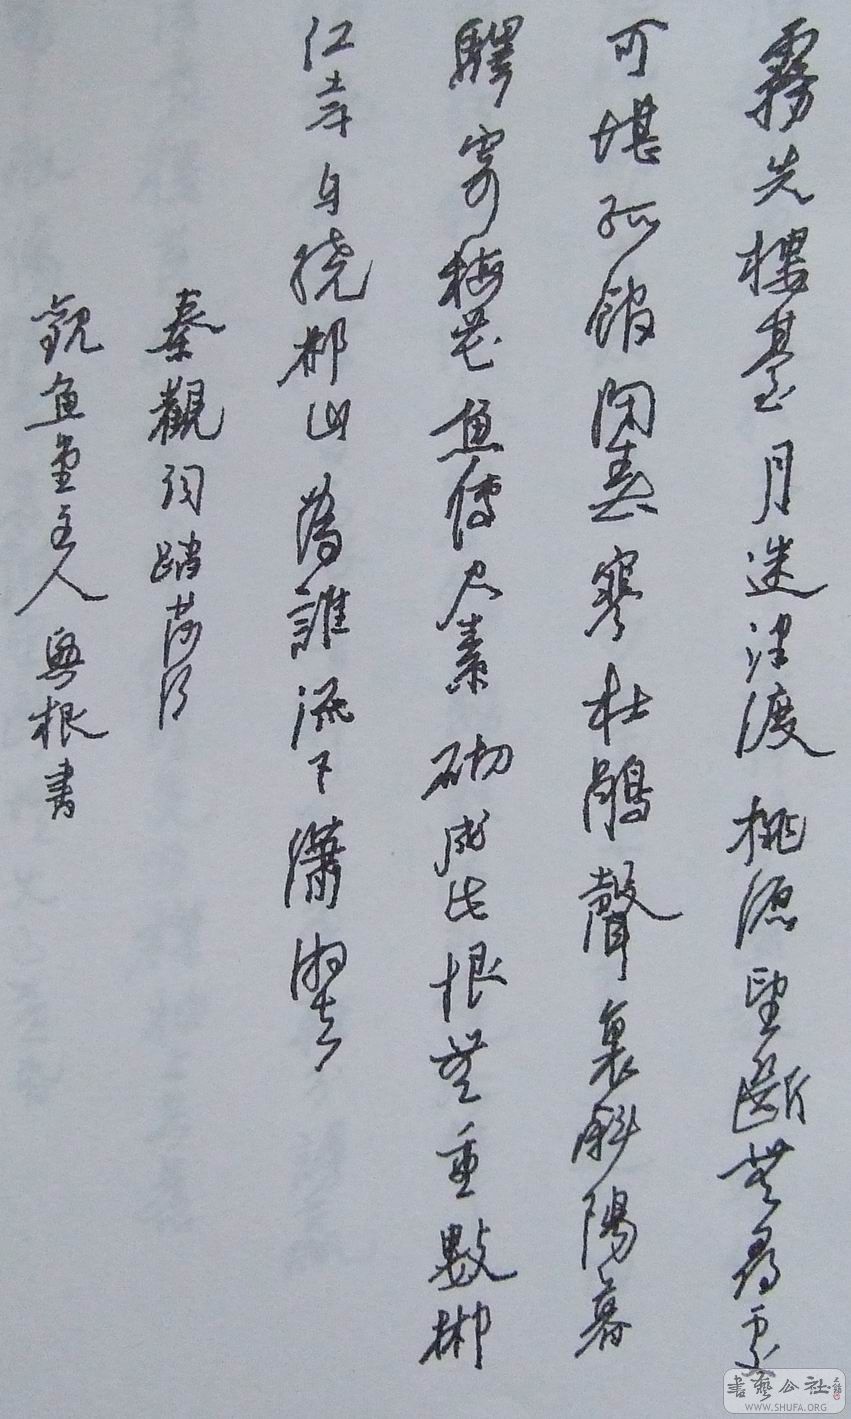 霧失樓臺月迷津渡桃源望斷無尋處
可堪孤館閉春寒杜鵑聲裏斜陽暮
驛寄梅花魚傳尺素砌成此恨無重數郴
江幸自繞郴山為誰流下瀟湘去
秦觀詞踏莎行
觀魚堂主人根書
書藝公社
WWW.SHUFA.ORG